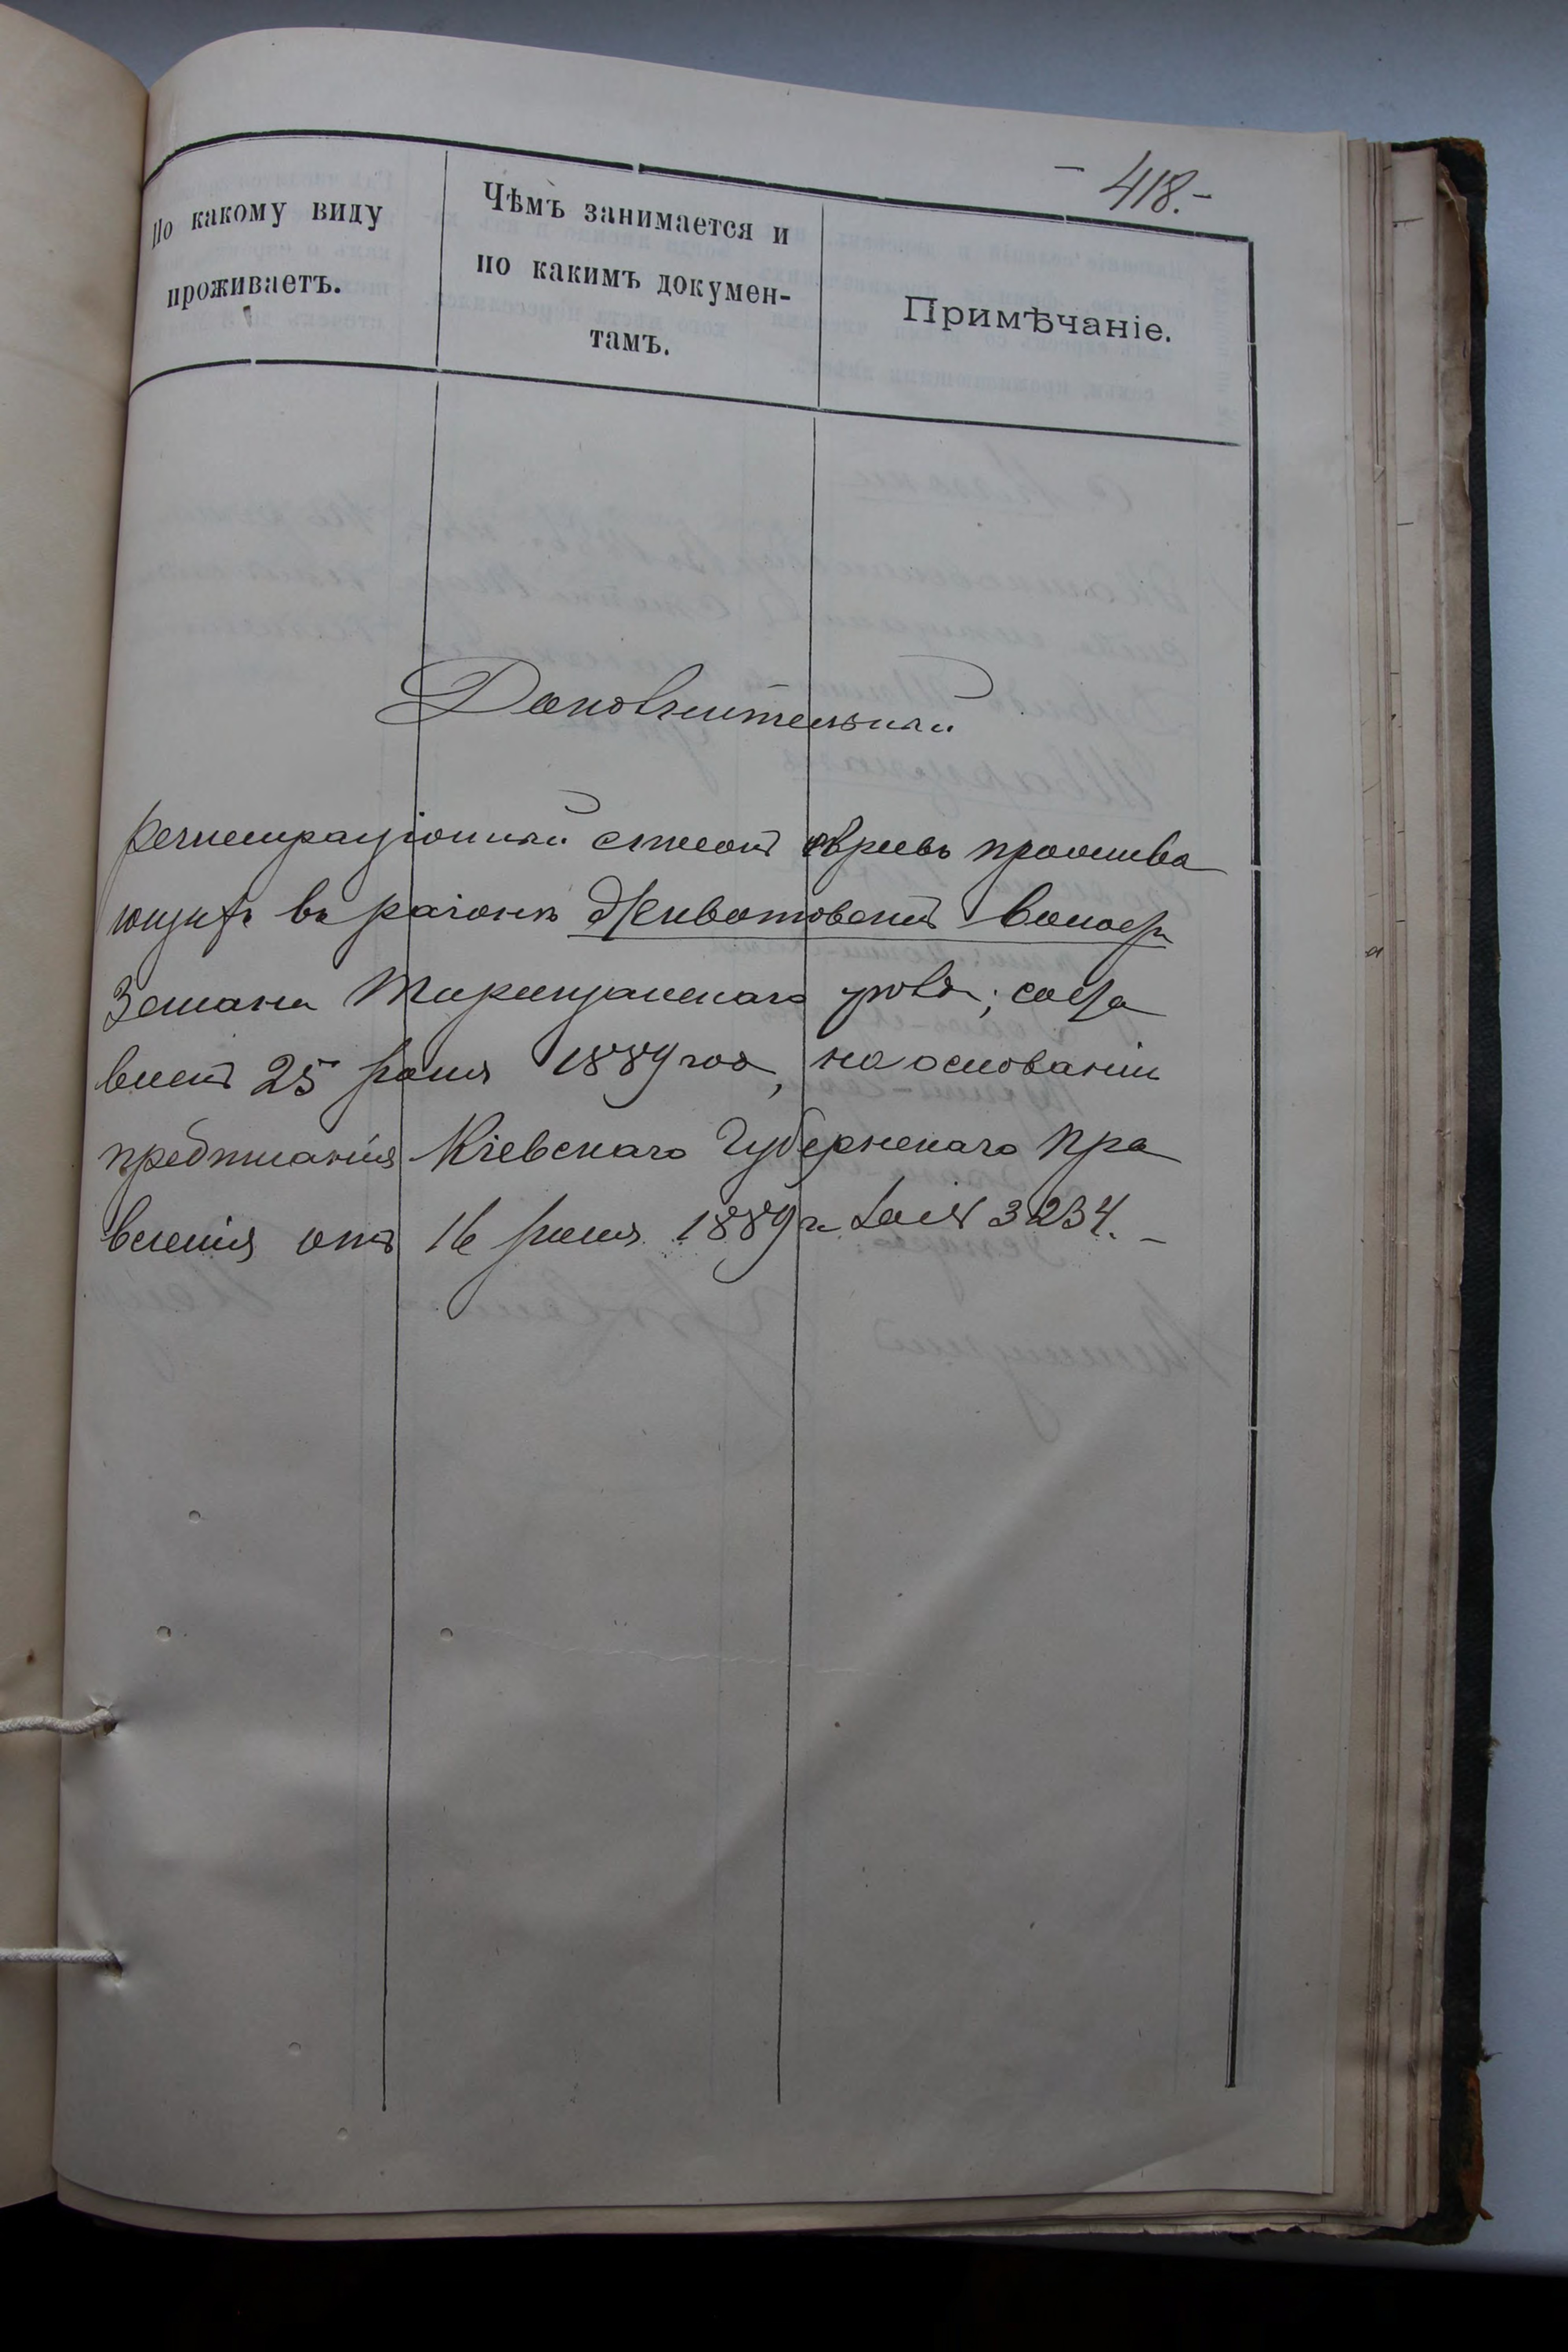 - 418. -
По какому виду
проживаетъ.
Чѣмъ занимается и
по какимъ докумен-
тамъ.
Примѣчаніе.
Дополнительный
регистраціонный списокъ евреевъ прожива
ющихъ въ раіонѣ Животовской волости
3 стана Таращанскаго уѣзда, соста
вленъ 25 1889 года, на основаніи
предписанія Кіевскаго Губернскаго Пра
вленія отъ 16 1889 г. за № 3234. -